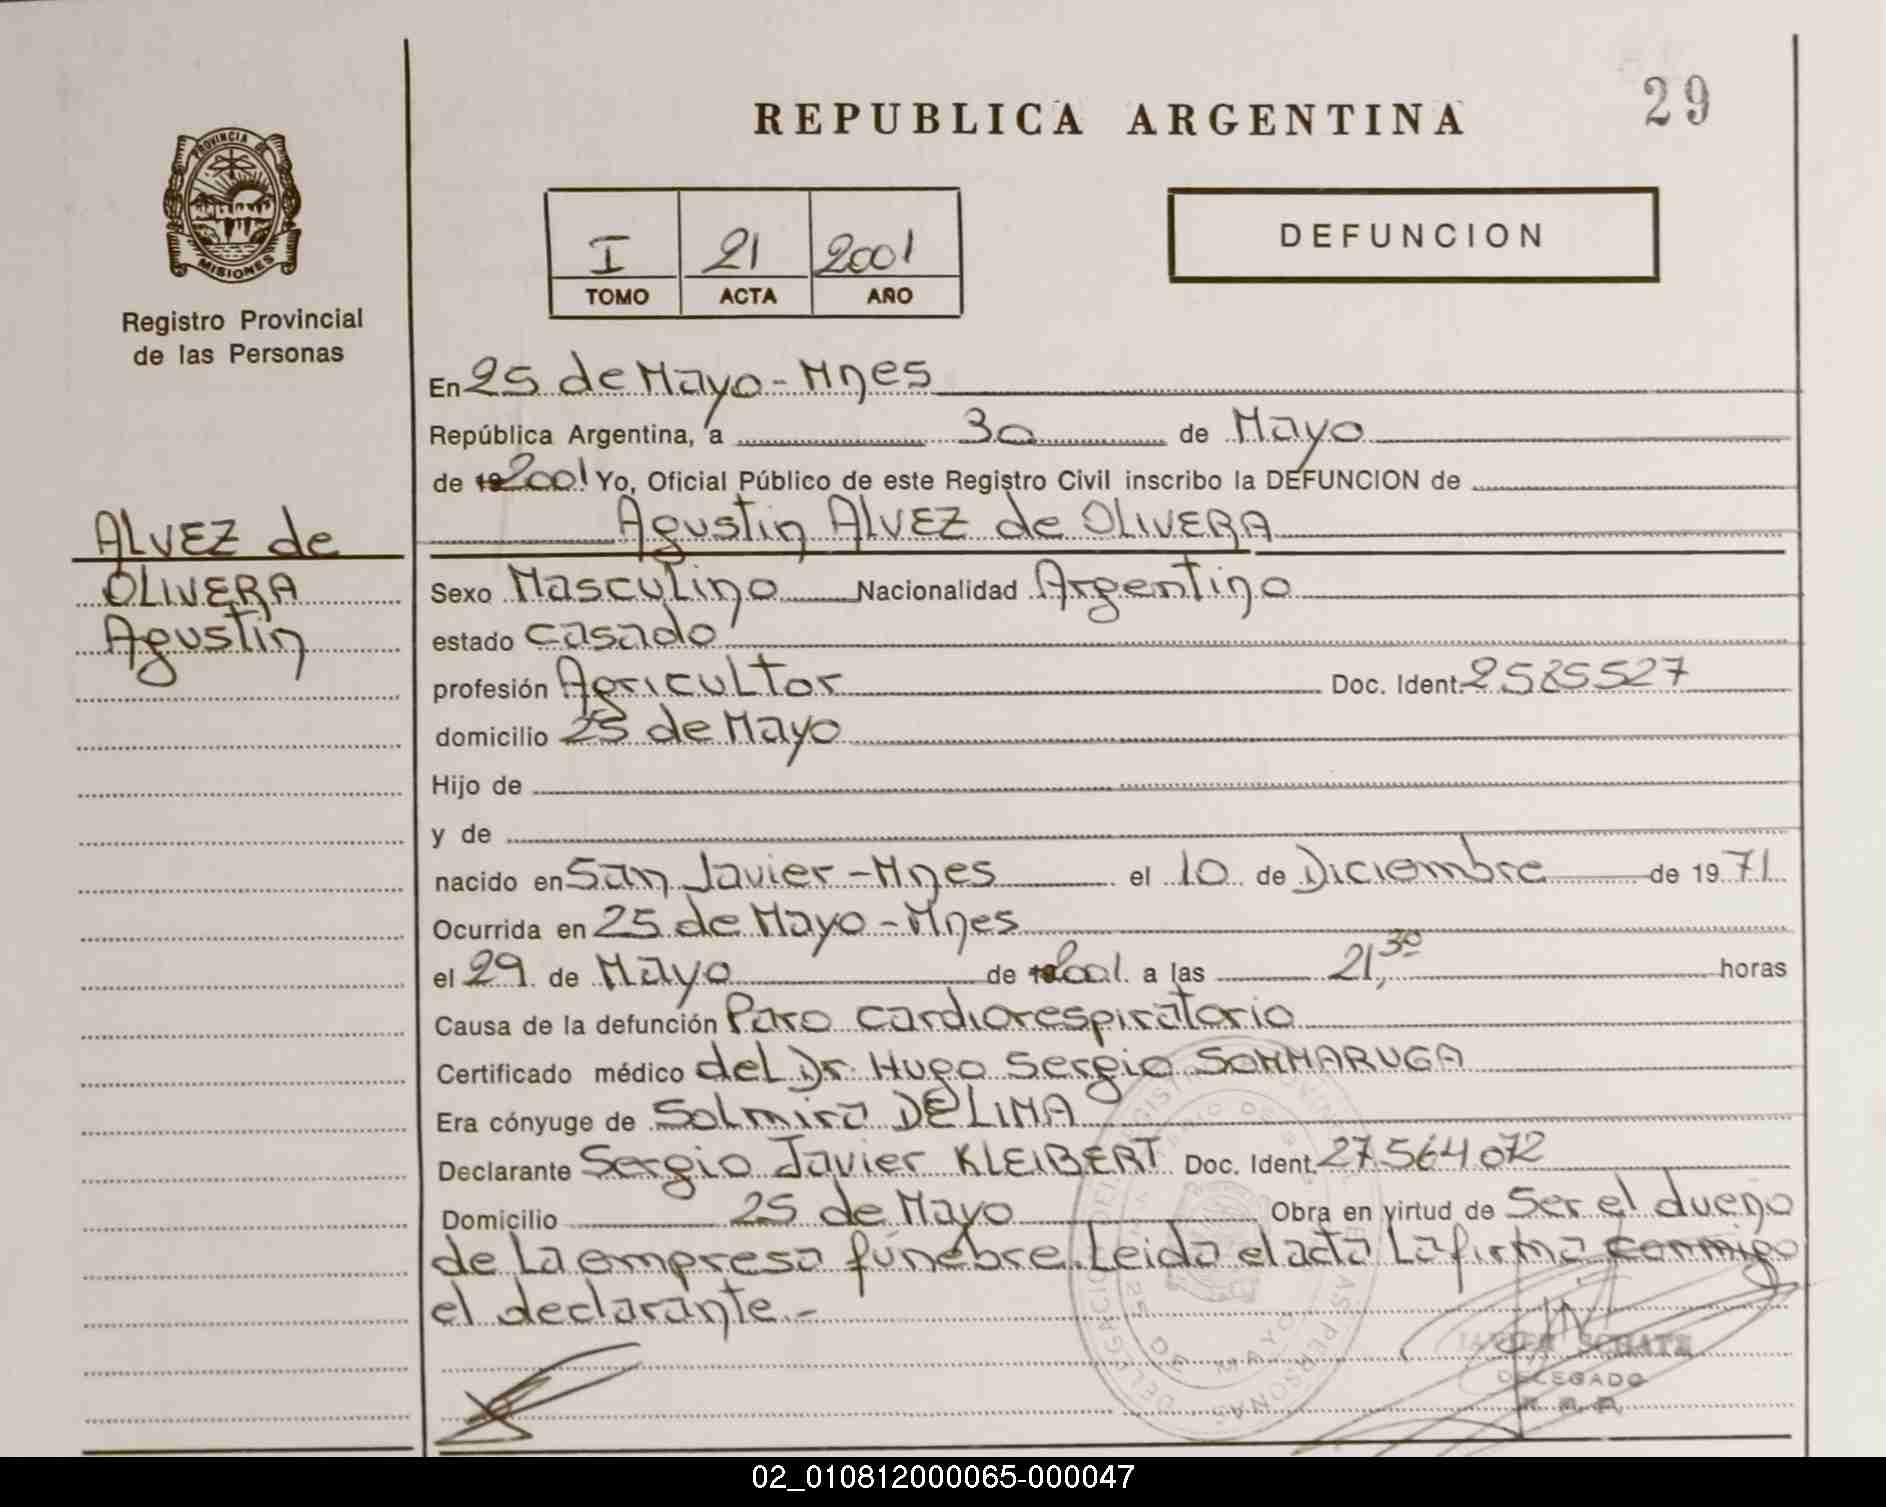 29
REPUBLICA ARGENTINA
PROVINCIA DE
MISIONES
I 21 2001
TOMO ACTA AÑO
DEFUNCION
Registro Provincial
de las Personas
ALVEZ de
OLIVERA
Agustin
En 25 de Mayo - Mnes
República Argentina, a 30 de Mayo
de 2001 Yo, Oficial Público de este Registro Civil inscribo la DEFUNCION de
Agustin ALVEZ de OLIVERA
Sexo Masculino Nacionalidad Argentino
estado casado
profesión Agricultor Doc. Ident. 2585527
domicilio 25 de Mayo
Hijo de
y de
nacido en San Javier - Mnes el 10 de Diciembre de 1971
Ocurrida en 25 de Mayo - Mnes
el 29 de Mayo de 2001 a las 21,30 horas
Causa de la defunción Paro cardiorespiratorio
Certificado médico del Dr. Hugo Sergio SOMMARUGA
Era cónyuge de Solmira DE LIMA
Declarante Sergio Javier KLEIBERT Doc. Ident. 27.564.072
Domicilio 25 de Mayo Obra en virtud de Ser el dueño
de la empresa fúnebre. Leida el acta La firma conmigo
el declarante.-
DELEGADO
02_010812000065-000047